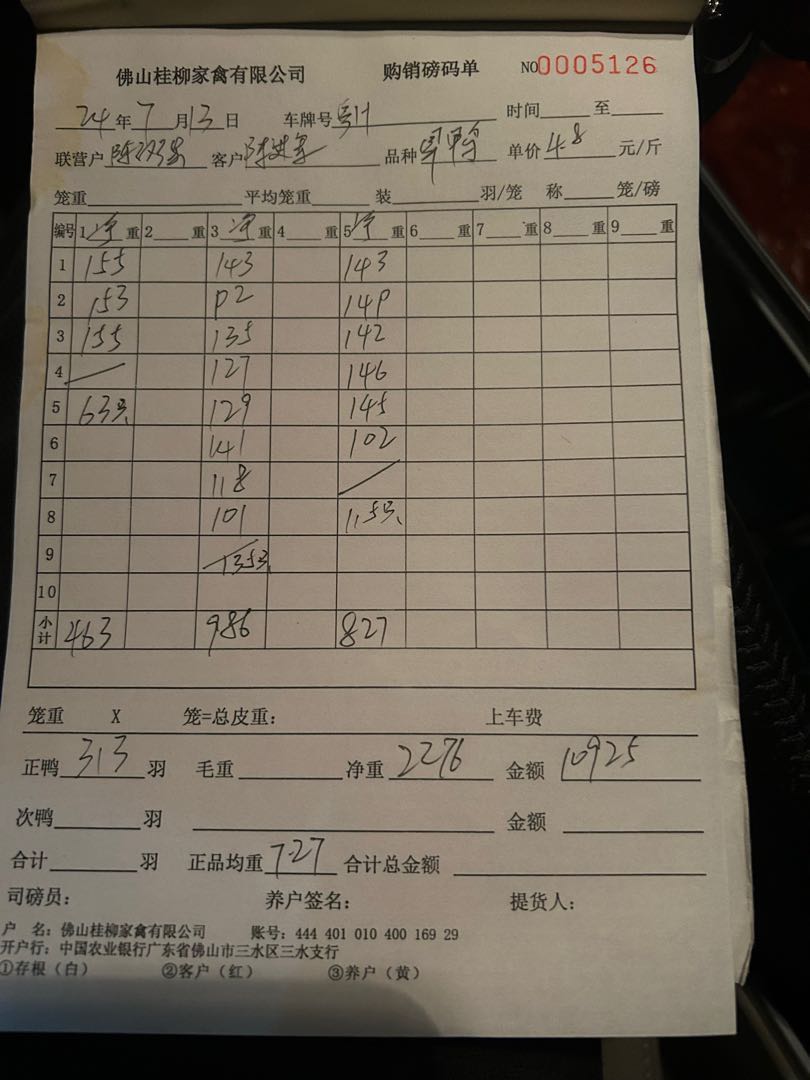 佛山桂柳家禽有限公司 购销磅码单 NO0005126
24年7月13日 车牌号 时间 至
联营户 客户 品种 单价4.8元/斤
笼重 平均笼重 装 羽/笼 称 笼/磅
编号 1净重 2 重 3净重 4 重 5净重 6 重 7 重 8 重 9 重
1 155 143 143
2 153 149
3 155 135 142
4 127 146
5 63只 129 145
6 141 102
7 118
8 101 115只
9 135只
10
小计 463 986 827
笼重 X 笼=总皮重: 上车费
正鸭313羽 毛重 净重2276 金额10925
次鸭 羽 金额
合计 羽 正品均重7.27 合计总金额
司磅员: 养户签名: 提货人:
户 名: 佛山桂柳家禽有限公司 账号: 444 401 010 400 169 29
开户行: 中国农业银行广东省佛山市三水区三水支行
①存根(白) ②客户(红) ③养户(黄)